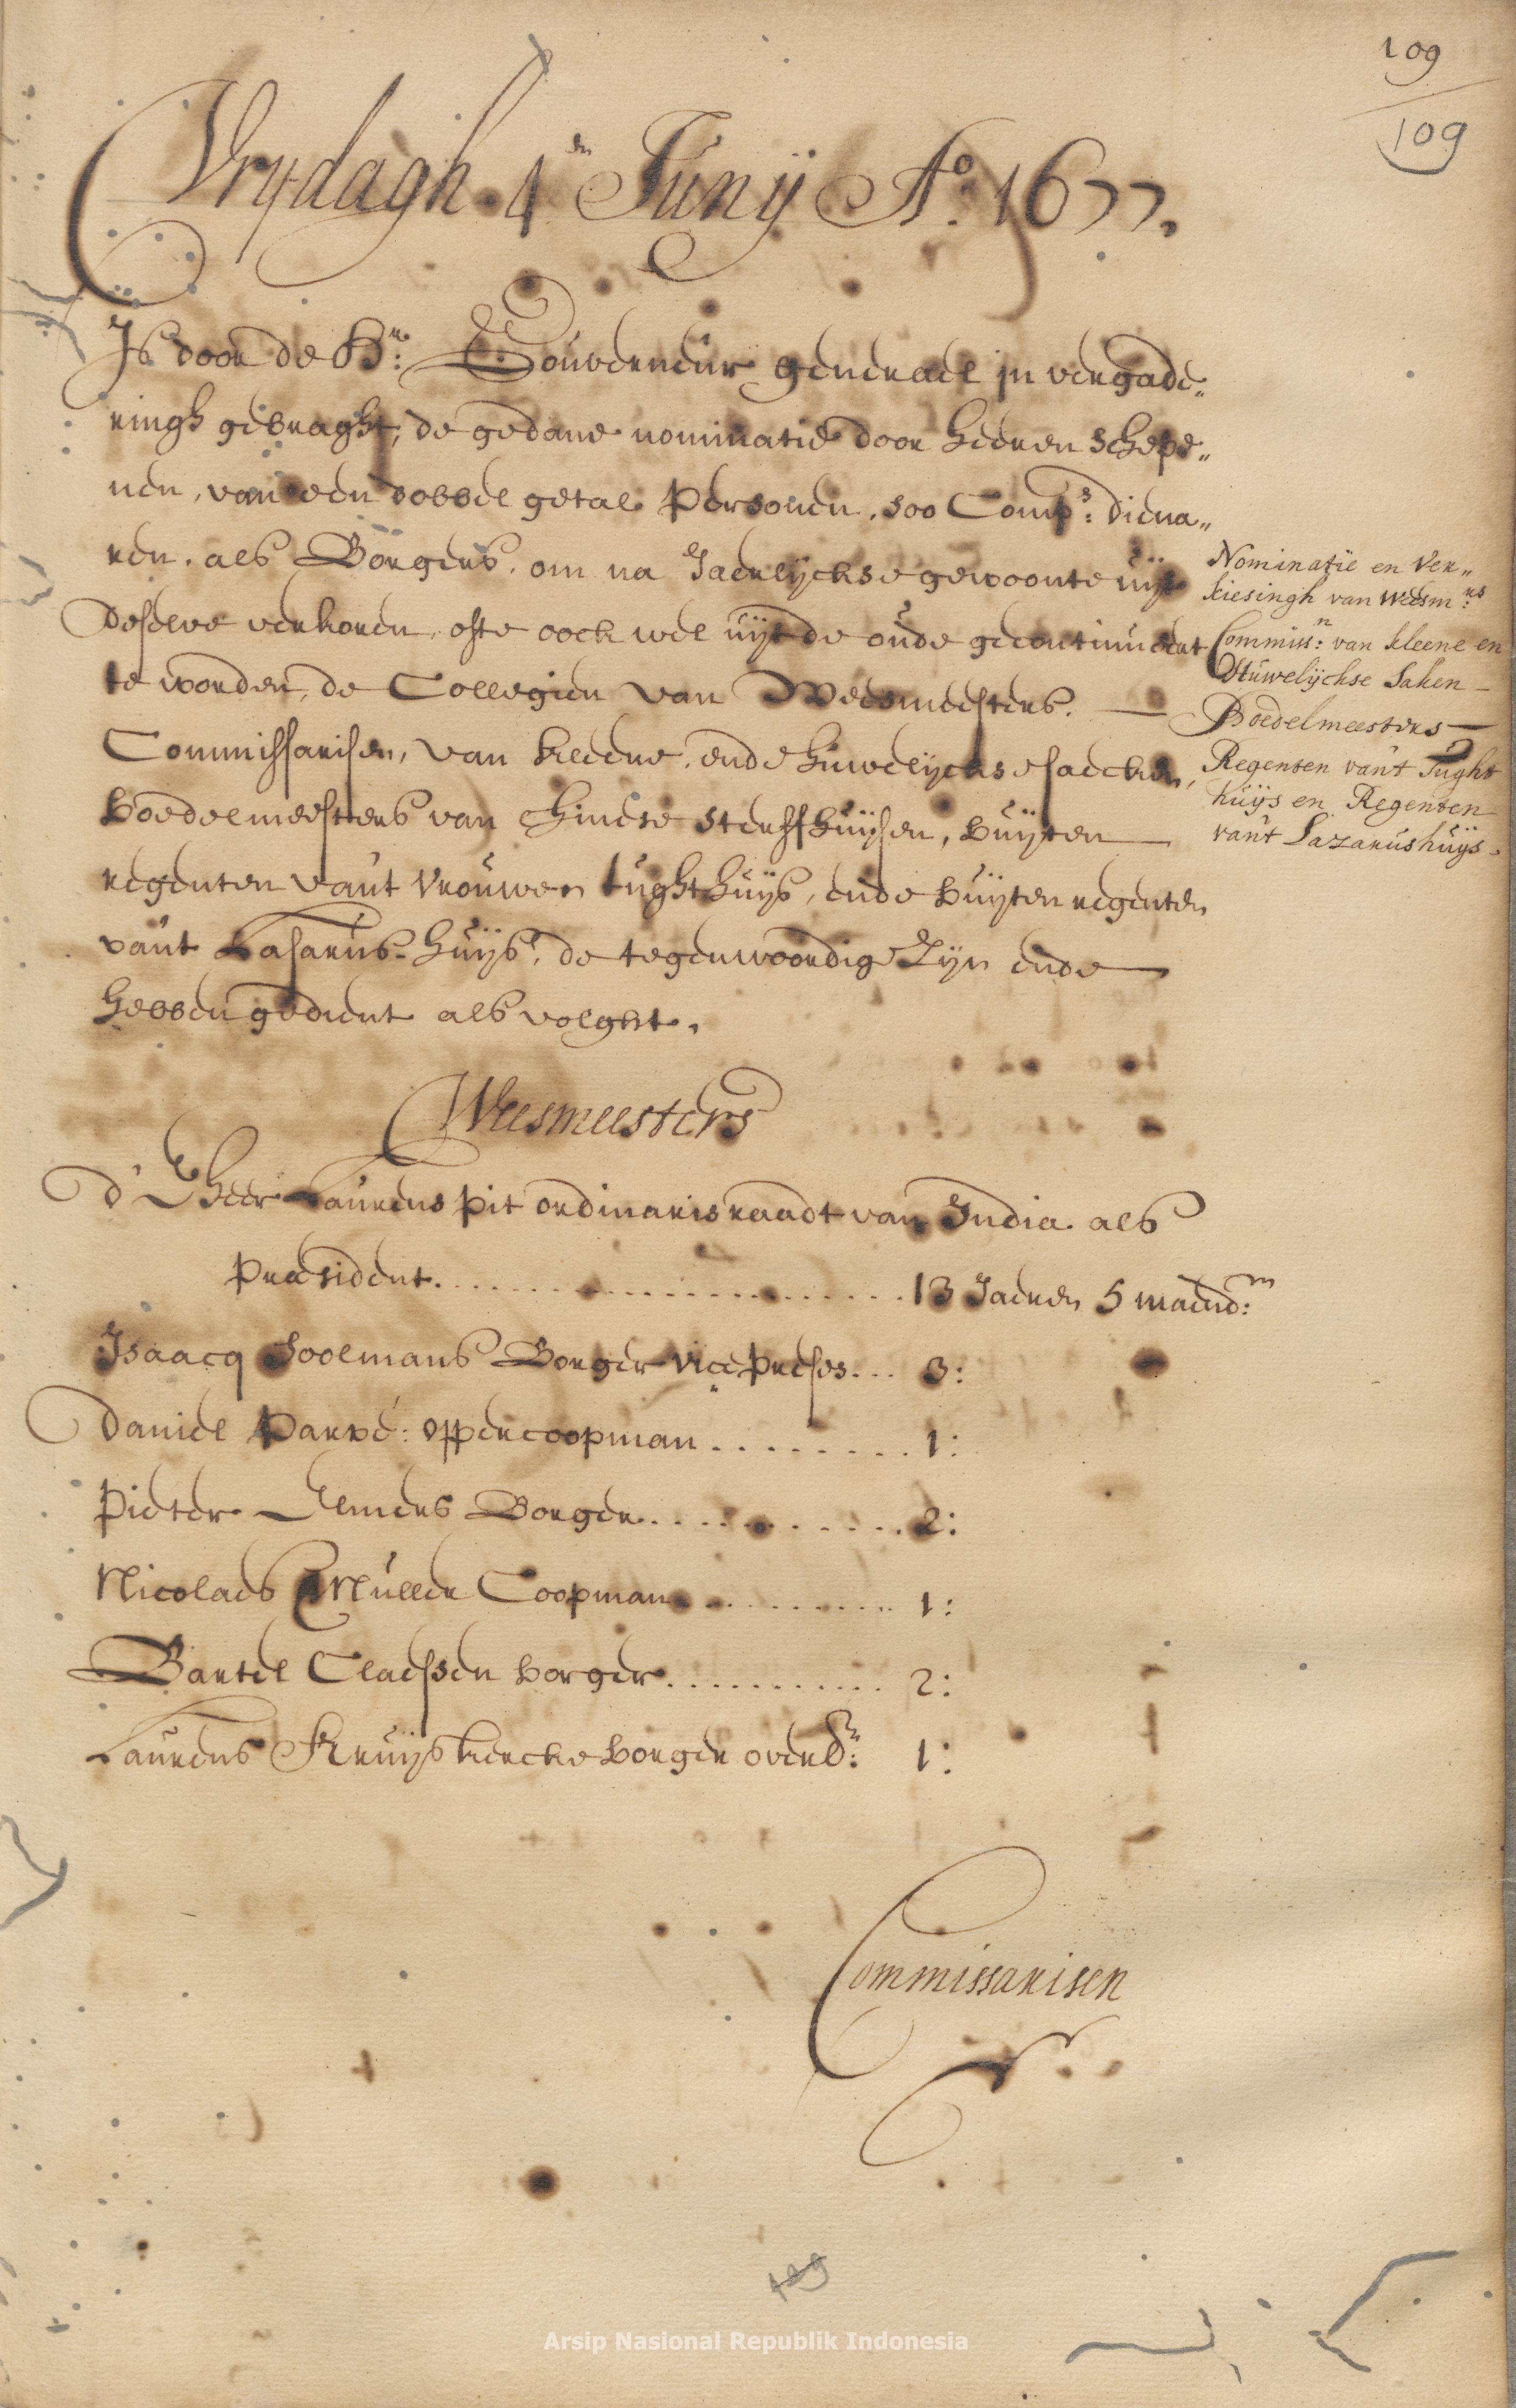 109
109
Vrydagh 4en Junij Ao. 1677.
Is door de Hr: Gouverneur generael in vergade„
ringh gebraght, de gedane nominatie door heeren schepe„
nen, van een dobbel getal persoonen, soo Comps: diena„
ren, als Borgers, om na Jaerlijckse gewoonte uijt
deselve verkoren, ofte oock wel uijt de oude gecontinueert
te worden, de Collegien van Weesmeesters. —
Commissarisen, van kleene, ende huwelijckse saecken,
boedelmeesters van Chinese sterffhuijsen, buijten —
regenten vant vrouwen tughthuijs, ende buijten regenten
vant Lasarus-huijs, de tegenwoordige Zijn ende —
hebben gedient als volght.
Nominatie en Ver„
kiesingh van Weesmrs:
Commissn: van kleene en
Huwelijckse Saken —
Boedelmeesters —
Regenten vant Tught
huijs en Regenten
vant Lazarushuijs.
Weesmeesters
d' E heer Laurens Pit ordinaris raadt van India als
President. . . . . . . . . . . 13 Jaeren 5 maendn:
Isaacq Soolmans Borger vice preses . . . 3:
Daniel Parvé: oppercoopman . . . . . . . . . 1:
Pieter Elmers Borger . . . . . . . . . . 2:
Nicolaes Muller Coopman . . . . . . . . . . 1:
Bartel Claessen borger . . . . . . . . . . . 2:
Laurens Kruijskercke borger overln: 1:
Commissarisen
109
Arsip Nasional Republik Indonesia